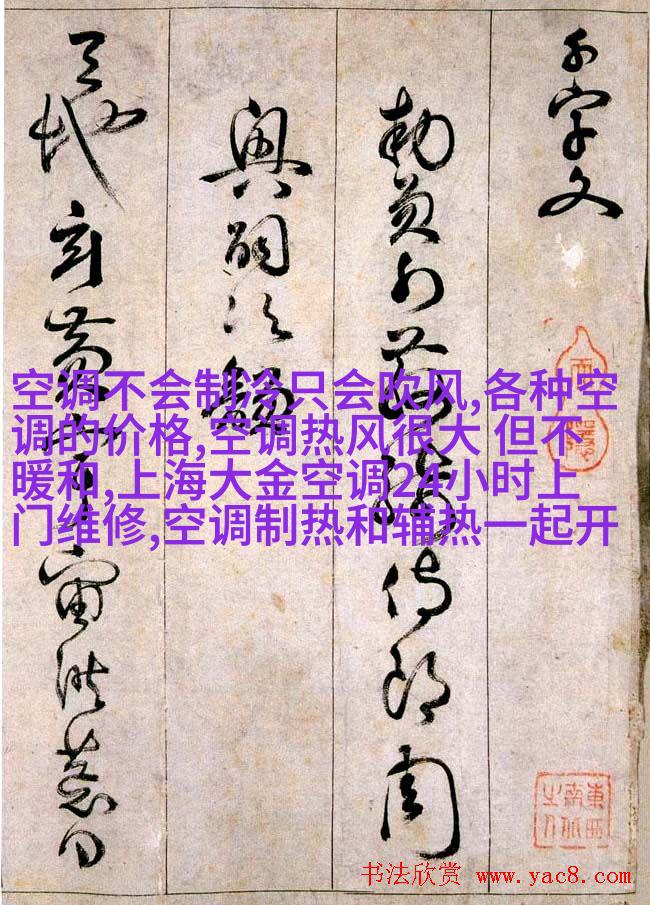 千字文
勅員外散騎侍郎周
興嗣次韻
天地玄黃宇宙洪荒日
空调不会制冷只会吹风,各种空
调的价格,空调热风很大 但不
暖和,上海大金空调24小时上
门维修,空调制热和辅热一起开
東西
南北
之人
书法欣赏 www.yac8.com